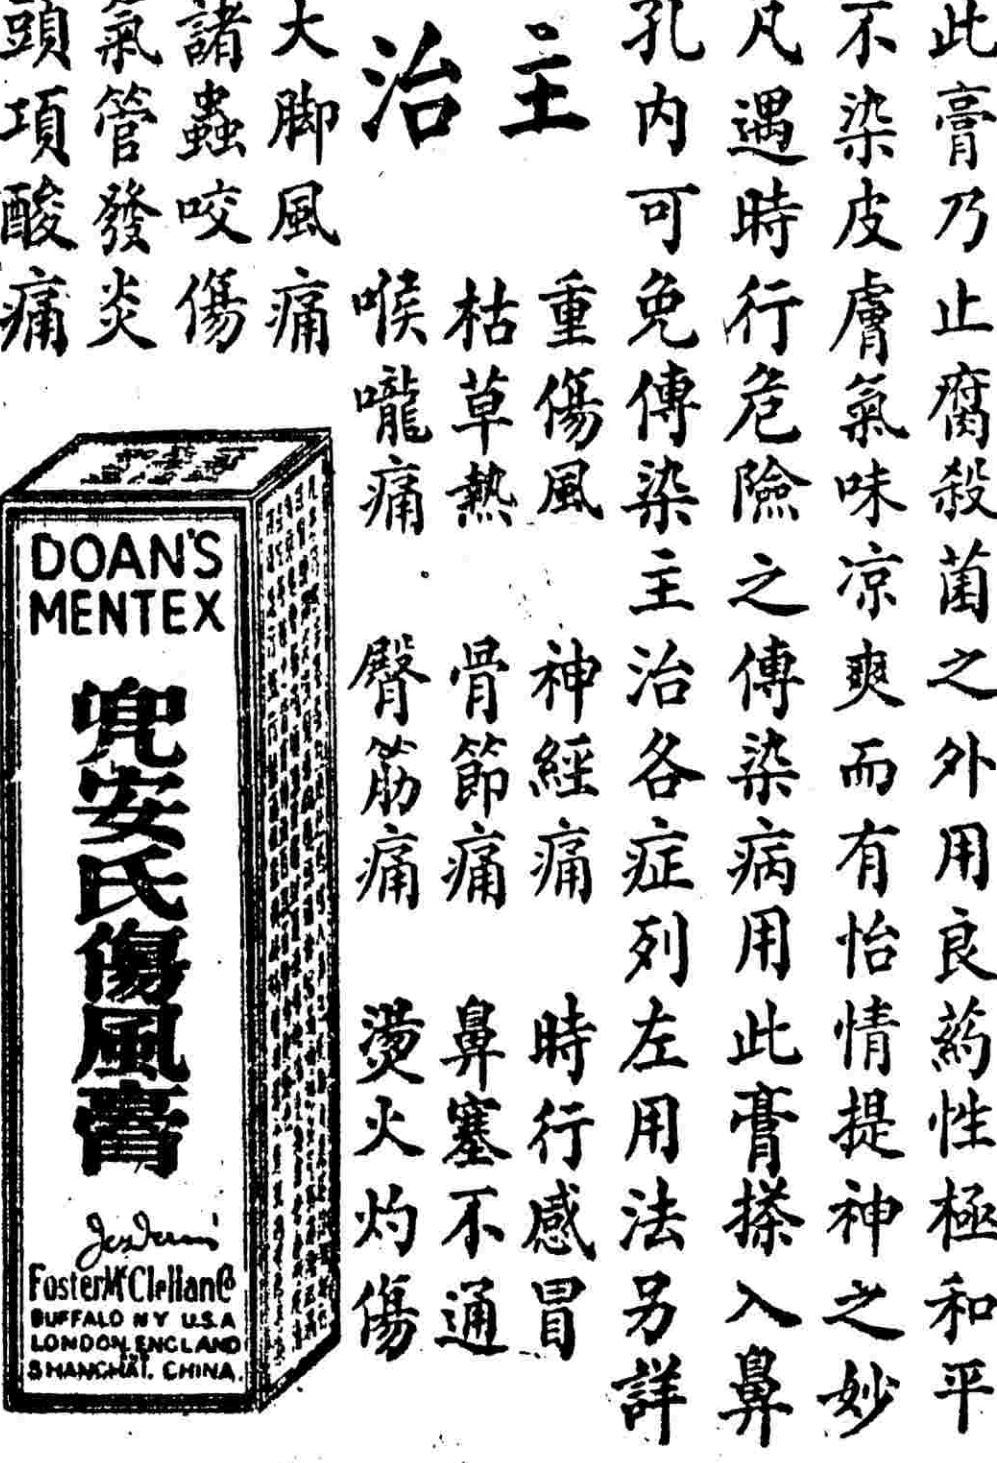 此膏乃止腐殺菌之外用良葯性極和平
不染皮膚氣味凉爽而有怡情提神之妙
凡遇時行危險之傳染病用此膏搽入鼻
孔内可免傳染主治各症列左用法另詳
主治
重傷風 神經痛 時行感冒
枯草熱 骨節痛 鼻塞不通
喉嚨痛 臀筋痛 燙火灼傷
大脚風痛
諸蟲咬傷
氣管發炎
頭項酸痛
DOAN'S
MENTEX
兜安氏傷風膏
Foster McClellan Co
BUFFALO NY U.S.A
LONDON, ENGLAND
SHANGHAI, CHINA.